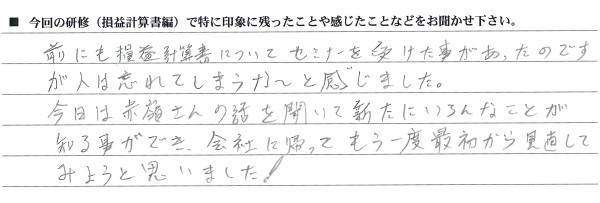 ■ 今回の研修（損益計算書編）で特に印象に残ったことや感じたことなどをお聞かせ下さい。
前にも損益計算書についてセミナーを受けた事があったのです
が人は忘れてしまうな〜と感じました。
今日は赤嶺さんの話を聞いて新たにいろんなことが
知る事ができ、会社に帰ってもう一度最初から見直して
みようと思いました!